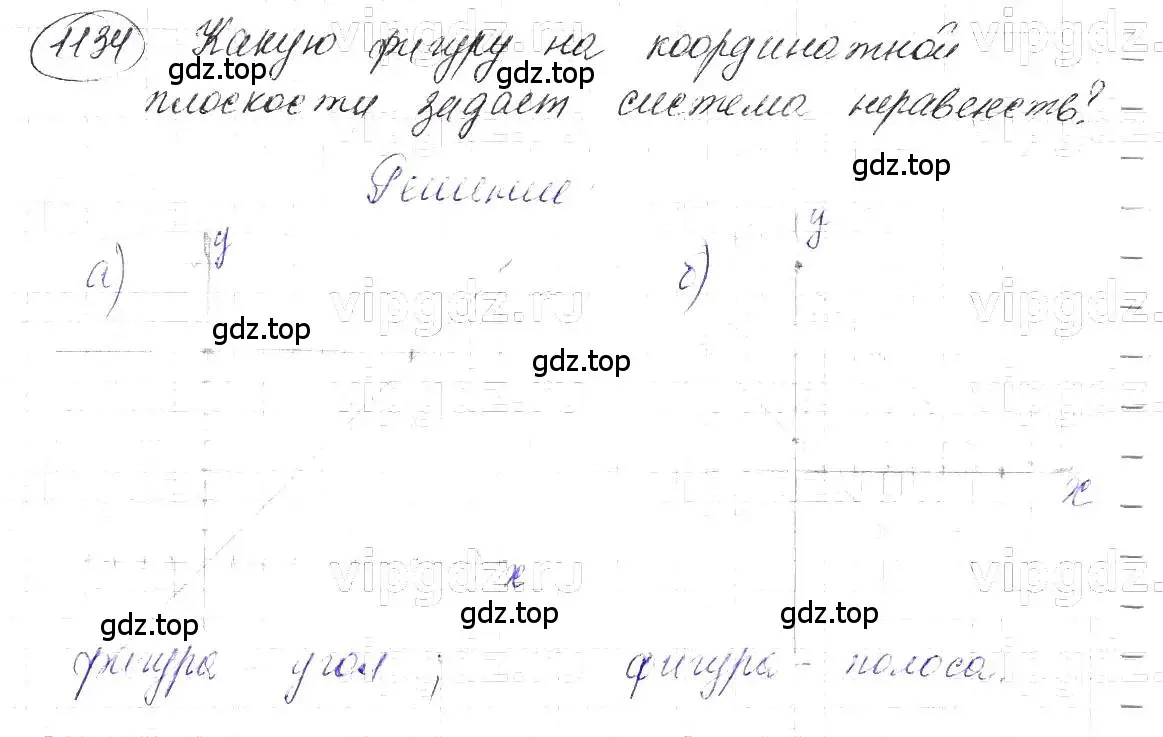 1134 Какую фигуру на координатной
gdz.top gdz.top
плоскости задает система неравенств?
gdz.top
Решение
а) y б) y
vipgdz.ru vipgdz
gdz.top
gdz.top
vipgdz.ru
x
vipgdz.ru vipgdz
x
gdz.top gdz.top gdz.top
фигура угол; фигура - полоса.